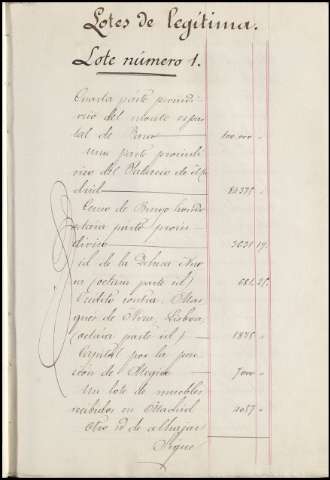 Lotes de legítima.
Lote número 1.
Cuarta parte proindi-
viso del monte espar-
tal de Baza 100.000 "
una parte proindi-
viso del Palacio de Ma-
drid
Censo de Burgo hondo
octava parte proin-
diviso 19.
id de la Dehesa Nue-
va (octava parte id) 25.
Crédito contra Mar-
ques de Lisboa,
(octava parte id) 1875 "
Capital por la pen-
sión de Alegría 7000 "
Un lote de muebles
recibidos en Madrid 4057 "
Otro id de alhajas
Sigue